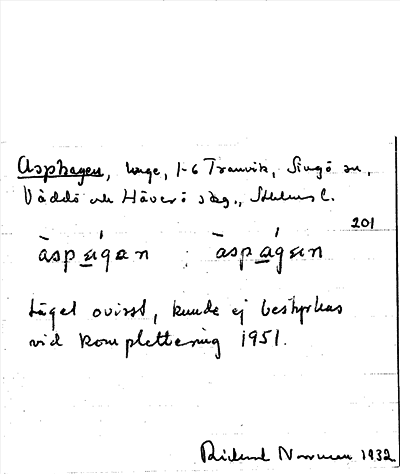 Asphagen, hage, 1-6 Tranvik, Singö sn,
Väddö och Häverö skg., Sthlms l.
201
àspágan : àspágan
Läget ovisst, kunde ej bestyrkas
vid komplettering 1951.
Rickard Norrman 1932